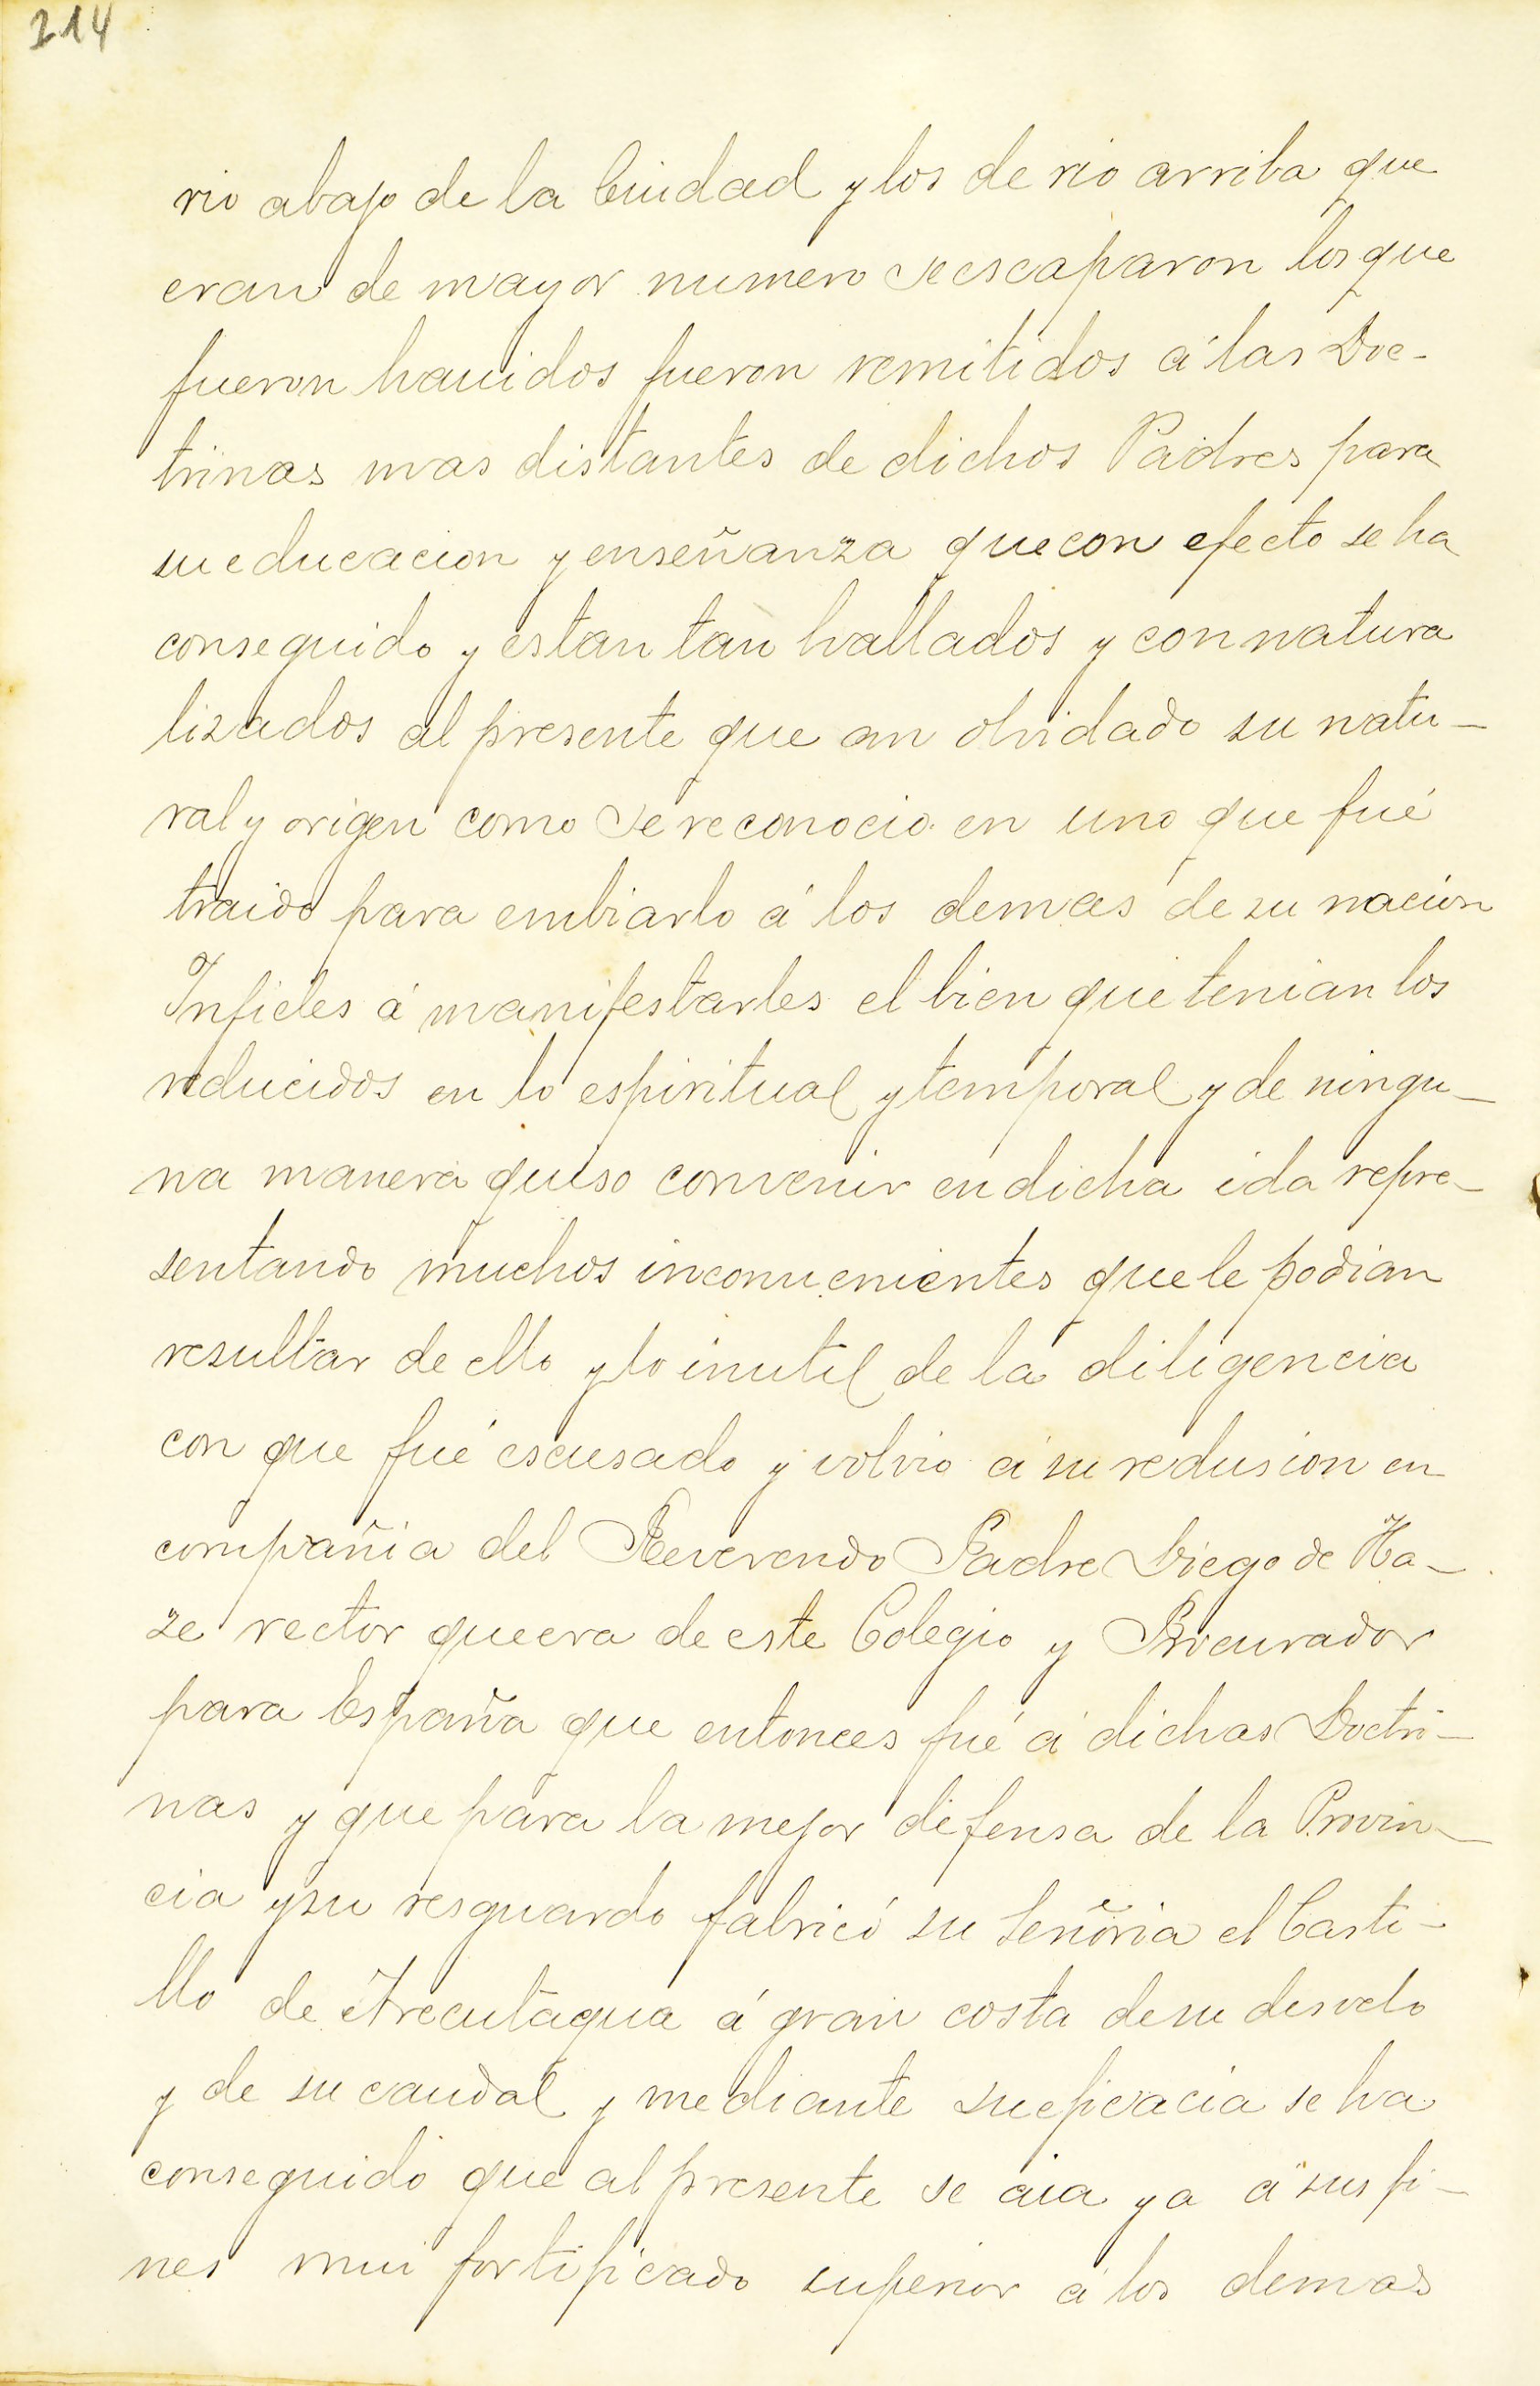 214
rio abajo de la Ciudad y los de rio arriba que
eran de mayor numero se escaparon los que
fueron hauidos fueron remitidos á las Doc-
trinas mas distantes de dichos Padres para
su educacion y enseñanza que con efecto se ha
conseguido y estan tan hallados y connatura
lizados al presente que an olvidado su natu-
ral y origen como se reconocio en uno que fué
traido para embiarlo á los demas de su nacion
Infieles á manifestarles el bien que tenian los
reducidos en lo espiritual y temporal y de ningu-
na manera quiso convenir en dicha ida repre-
sentando muchos inconuenientes que le podian
resultar de ello y lo inutil de la diligencia
con que fué escusado y volvio á su redusion en
compañia del Reverendo Padre Diego de Ha-
ze rector que era de este Colegio y Procurador
para España que entonces fué á dichas Doctri-
nas y que para la mejor defensa de la Provin-
cia y su resguardo fabricó su Señoria el Casti-
llo de Arecutagua á gran costa de su desvelo
y de su caudal y mediante su eficacia se ha
conseguido que al presente se aia ya á sus fi-
nes mui fortificado superior á los demas